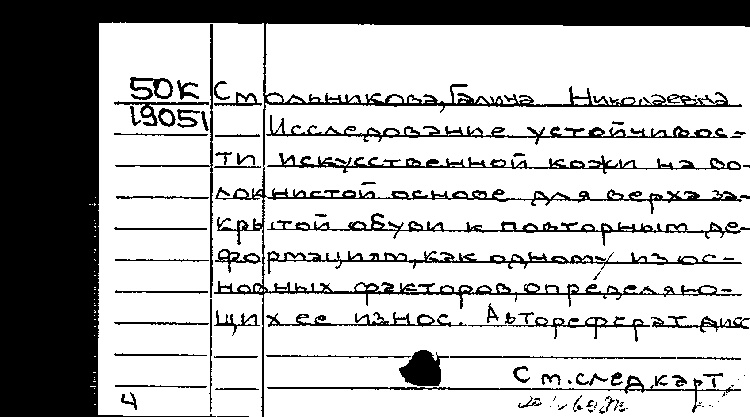 50К Смольникова, Галина Николаевна
19051 Исследование устойчивос-
ти искусственной кожи на во-
локнистой основе для верха за-
крытой обуви к повторным де-
формациям, как одному из ос-
новных факторов, определяю-
щих ее износ. Автореферат дис
См. след. карт.
4